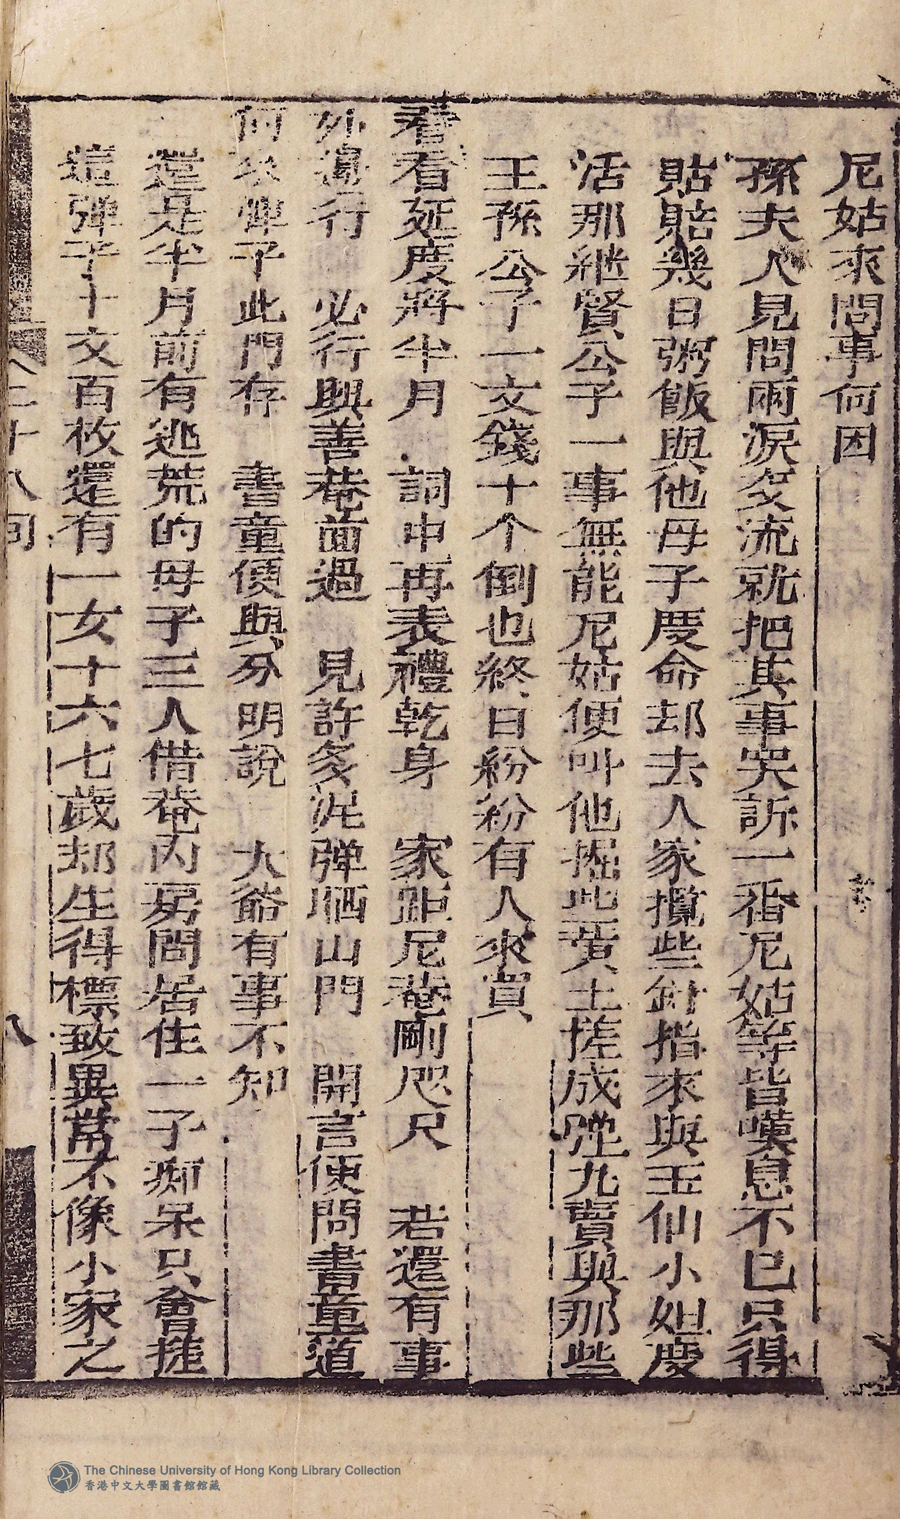 尼姑來問事何因
孫夫人見問兩淚交流就把其事哭訴一番尼姑等皆嘆息不已只得
貼賠幾日粥飯與他母子度命却去人家攬些針指來與玉仙小姐度
活那継賢公子一事無能尼姑便叫他掘些黃土搓成弹九賣與那些
王孫公子一文錢十个倒也終日紛紛有人來買
看看延度將半月 詞中再表禮乾身 家距尼菴剛咫尺 若還有事
外邉行 必行興善菴面過 見許多泥弹晒山門 開言便問書童道
何以弹子此門存 書童便與分明說 大爺有事不知
這是半月前有逃荒的母子三人借菴內房間居住一子痴呆只會搓
這弹子十文百枚還有一女十六七歲却生得標致異常不像小家之
二十八回
八
The Chinese University of Hong Kong Library Collection
香港中文大學圖書館館藏